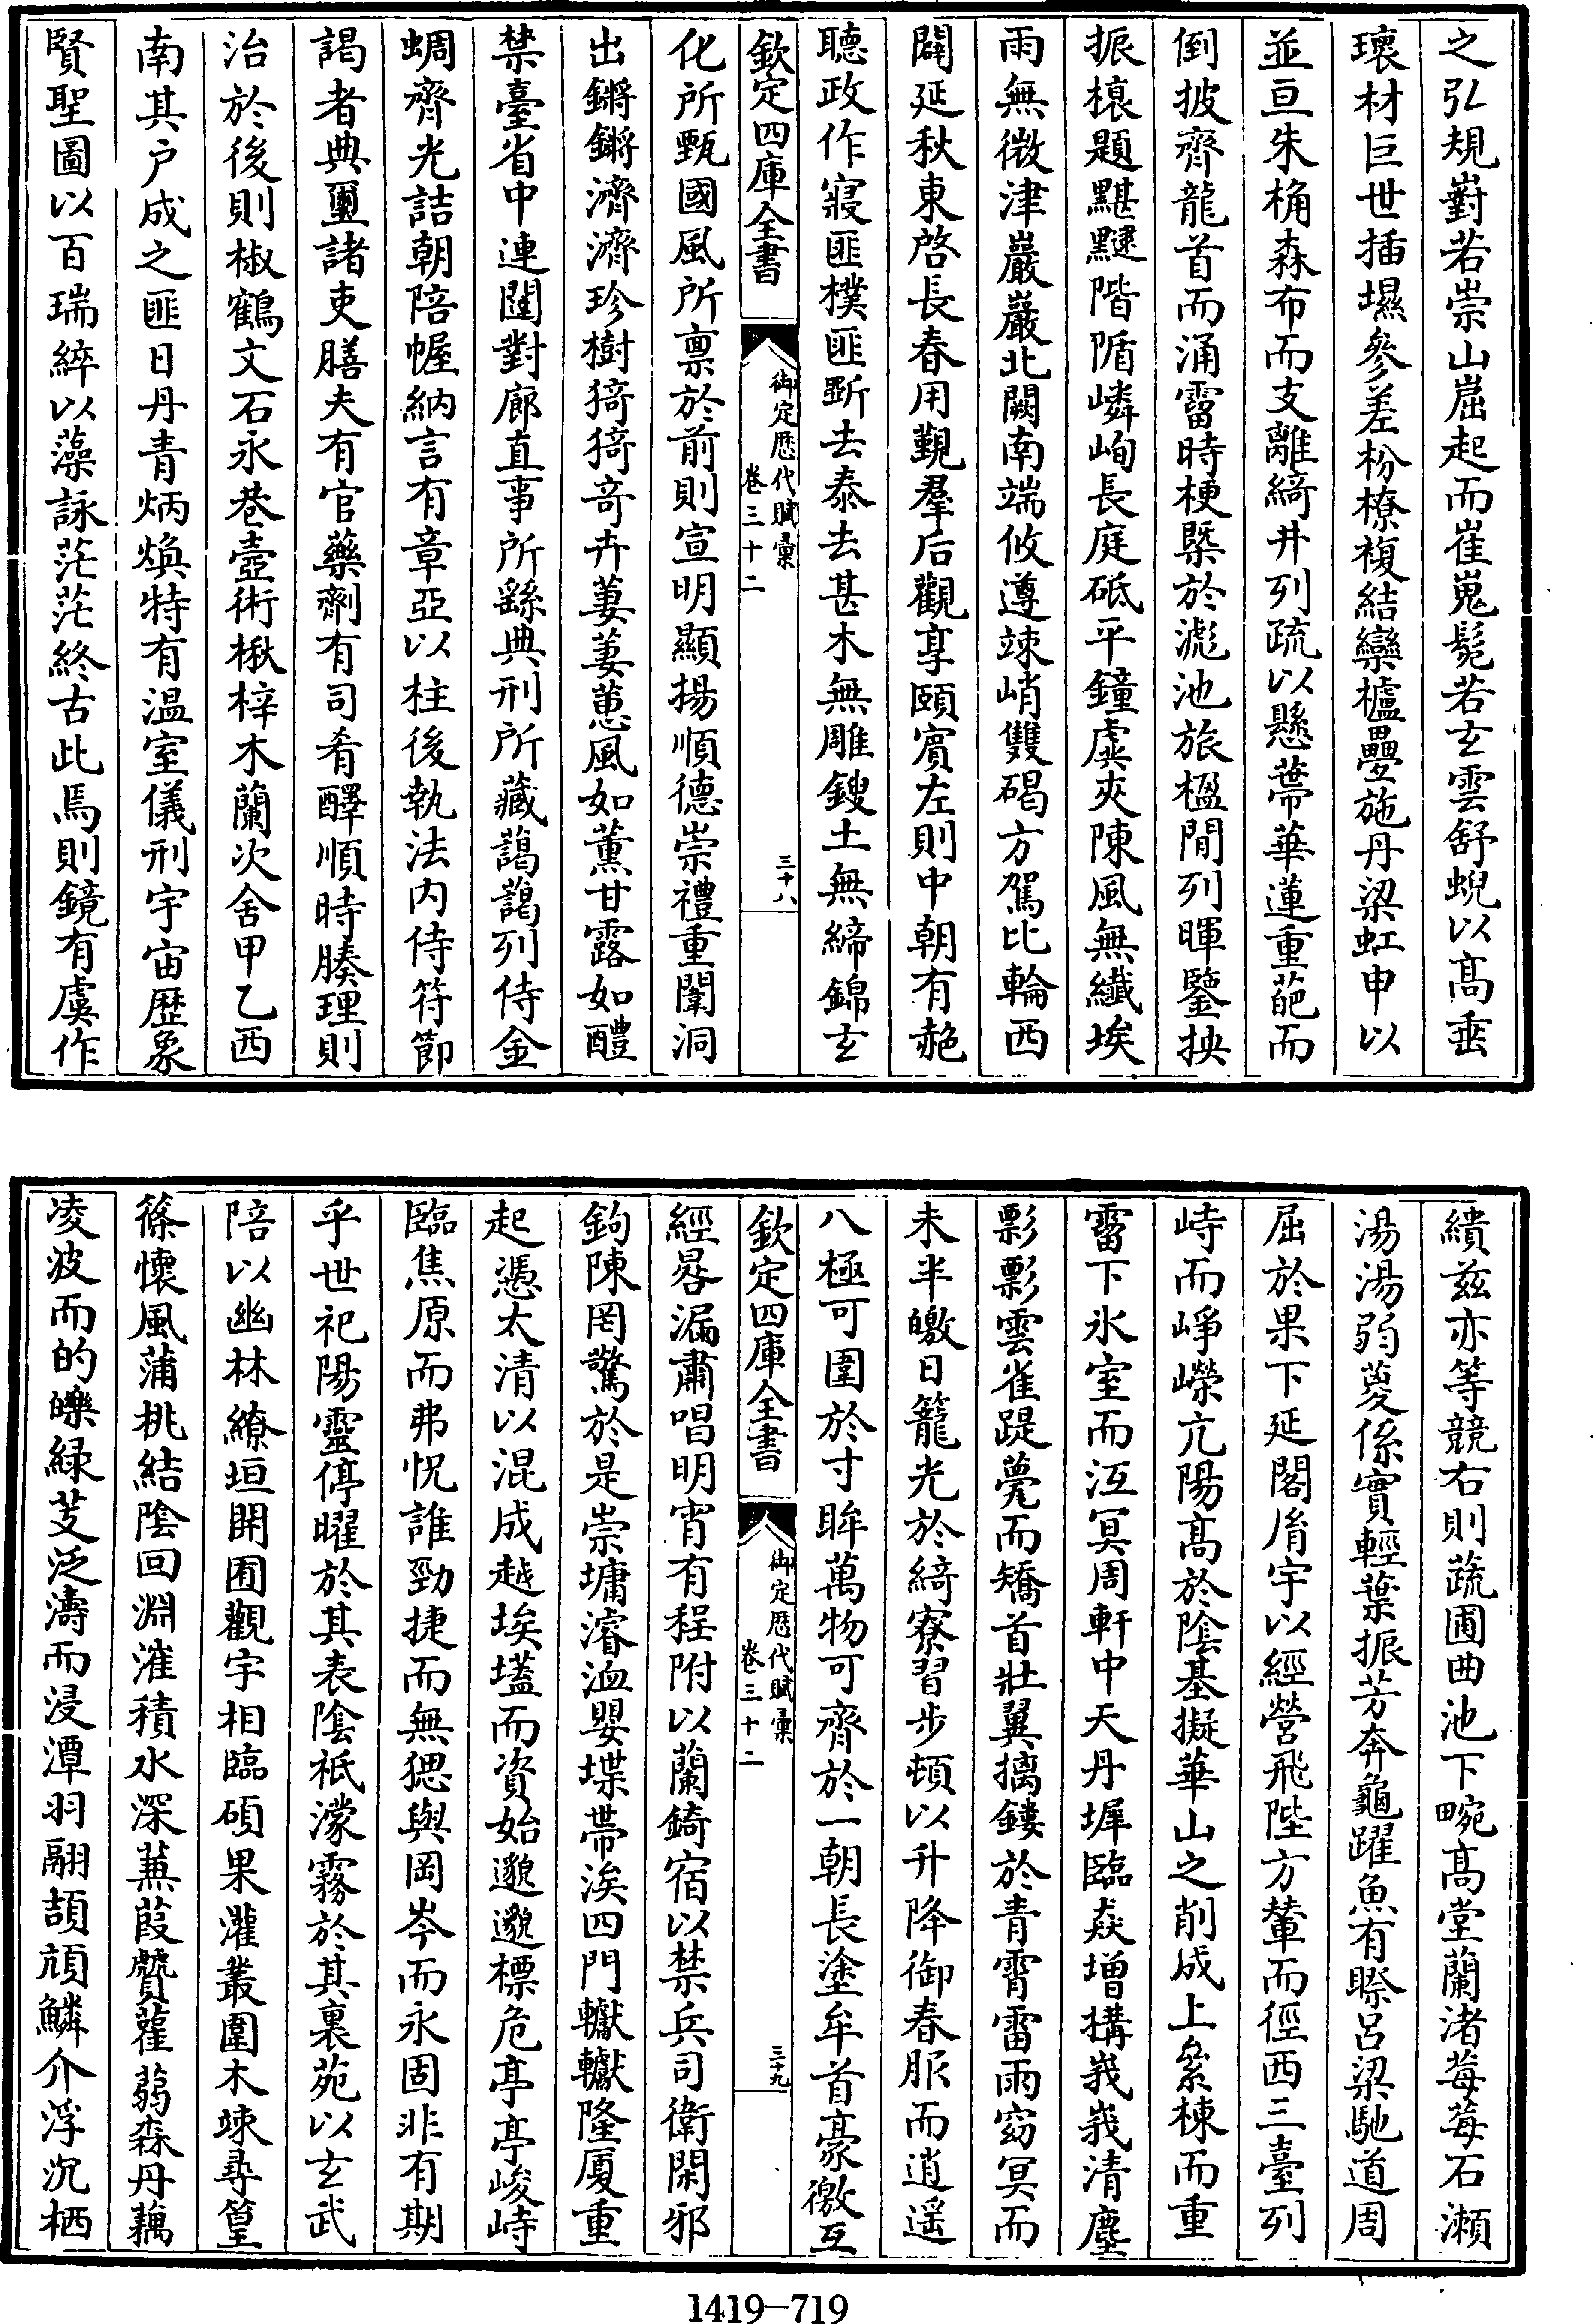 之弘規對若崇山崫起而崔嵬髧若玄雲舒蜺以髙垂
瓌材巨世插㙷參差枌橑複結欒櫨疊施丹梁虹申以
並亘朱桷森布而支離綺井列疏以懸蔕華蓮重葩而
倒披齊龍首而涌霤時梗槩於滮池旅楹閒列暉鑒抰
振榱題黮䨴階𨺔嶙峋長庭砥平鐘虡夾陳風無纎埃
雨無微津巖巖北闕南端攸遵竦峭雙碣方駕比輪西
闢延秋東啓長春用覲羣后觀享頤賔左則中朝有赩
聽政作寢匪樸匪斲去泰去甚木無雕鎪土無綈錦玄
欽定四庫全書
御定歴代賦彙
卷三十二
三十八
化所甄國風所禀於前則宣明顯揚順德崇禮重闈洞
出鏘鏘濟濟珍樹猗猗竒卉萋萋蕙風如薫甘露如醴
禁臺省中連闥對廊直事所繇典刑所藏藹藹列侍金
蜩齊光詰朝陪幄納言有章亞以柱後執法内侍符節
謁者典璽諸吏膳夫有官藥劑有司肴醳順時腠理則
治於後則椒鶴文石永巷壼術楸梓木蘭次舍甲乙西
南其户成之匪日丹青炳煥特有温室儀刑宇宙歴象
賢聖圖以百瑞綷以藻詠茫茫終古此焉則鏡有虞作
繢兹亦等競右則蔬圃曲池下畹髙堂蘭渚莓莓石瀬
湯湯弱葼係實輕葉振芳奔龜躍魚有䁲吕梁馳道周
屈於果下延閣𦙍宇以經營飛陛方輦而徑西三臺列
峙而峥嶸亢陽髙於陰基擬華山之削成上絫棟而重
霤下氷室而沍冥周軒中天丹墀臨猋增搆峩峩清塵
彯彯雲雀踶甍而矯首壯翼摛鏤於青霄雷雨窈冥而
未半皦日籠光於綺寮習步頓以升降御春服而逍遥
八極可圍於寸眸萬物可齊於一朝長塗牟首豪徼互
欽定四庫全書
御定歴代賦彙
卷三十二
三十九
經晷漏肅唱明宵有程附以蘭錡宿以禁兵司衛閑邪
鉤陳罔驚於是崇墉濬洫嬰堞帶涘四門轥轥隆厦重
起憑太清以混成越埃壒而資始邈邈標危亭亭峻峙
臨焦原而弗怳誰勁捷而無猲與岡岑而永固非有期
乎世祀陽靈停曜於其表陰祇濛霧於其裏苑以玄武
陪以幽林繚垣開囿觀宇相臨碩果灌叢圍木竦尋篁
篠懷風蒲桃結陰回淵漼積水深蒹葭贙雚蒻森丹藕
凌波而的皪緑芰泛濤而浸潭羽翮頡頏鱗介浮沉栖
1419—719